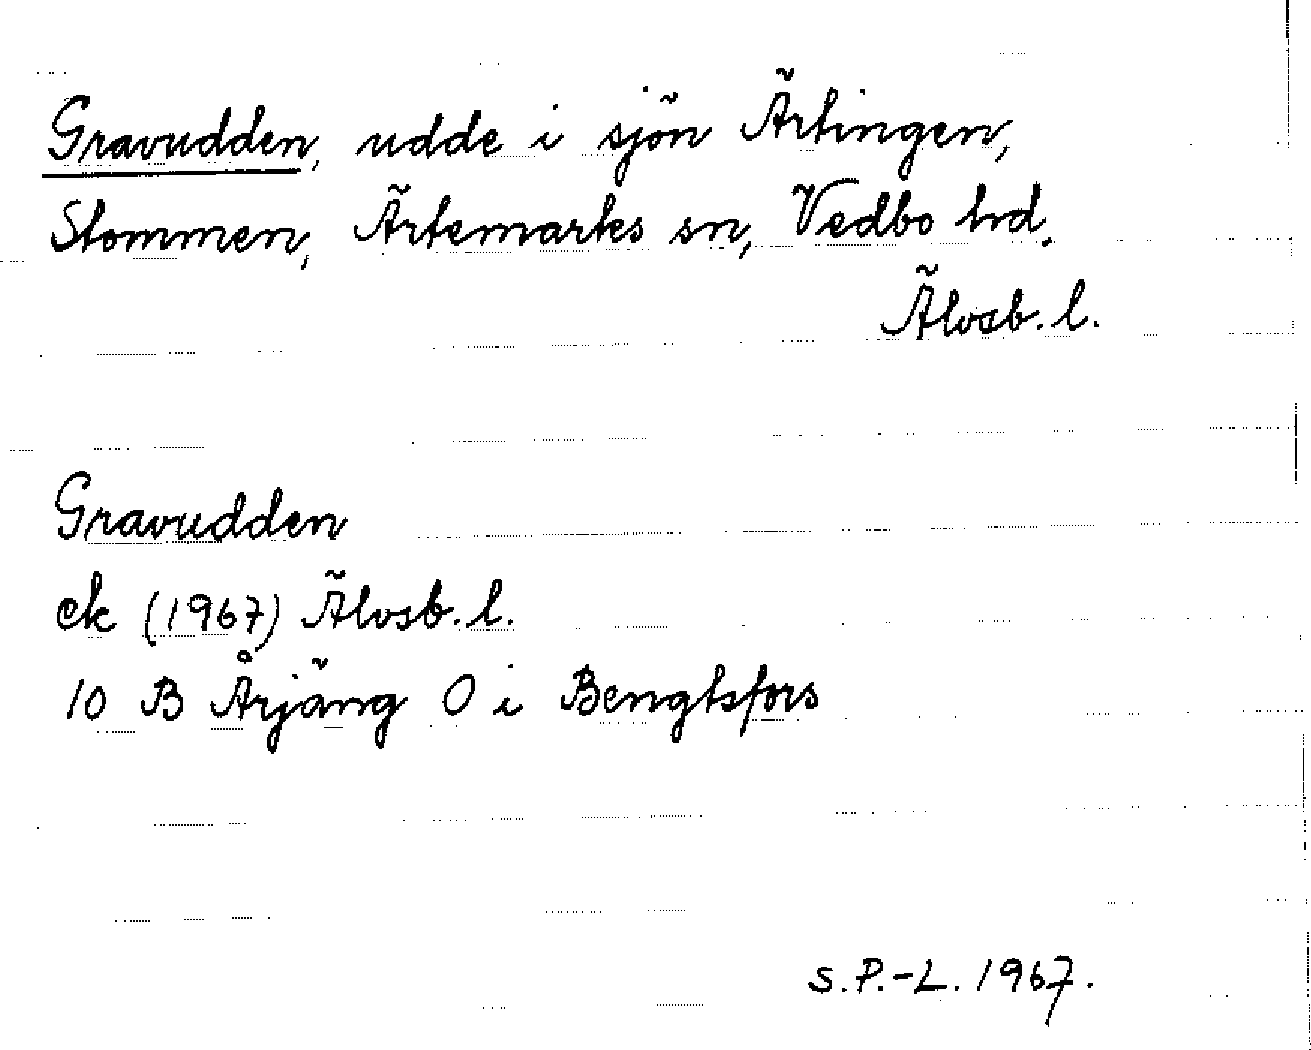 Gravudden, udde i sjön Ärtingen,
Stommen, Ärtemarks sn, Vedbo hd.
Älvsb. l.
Gravudden
ek (1967) Älvsb. l.
10 B Årjäng O i Bengtsfors
S. P.-L. 1967.